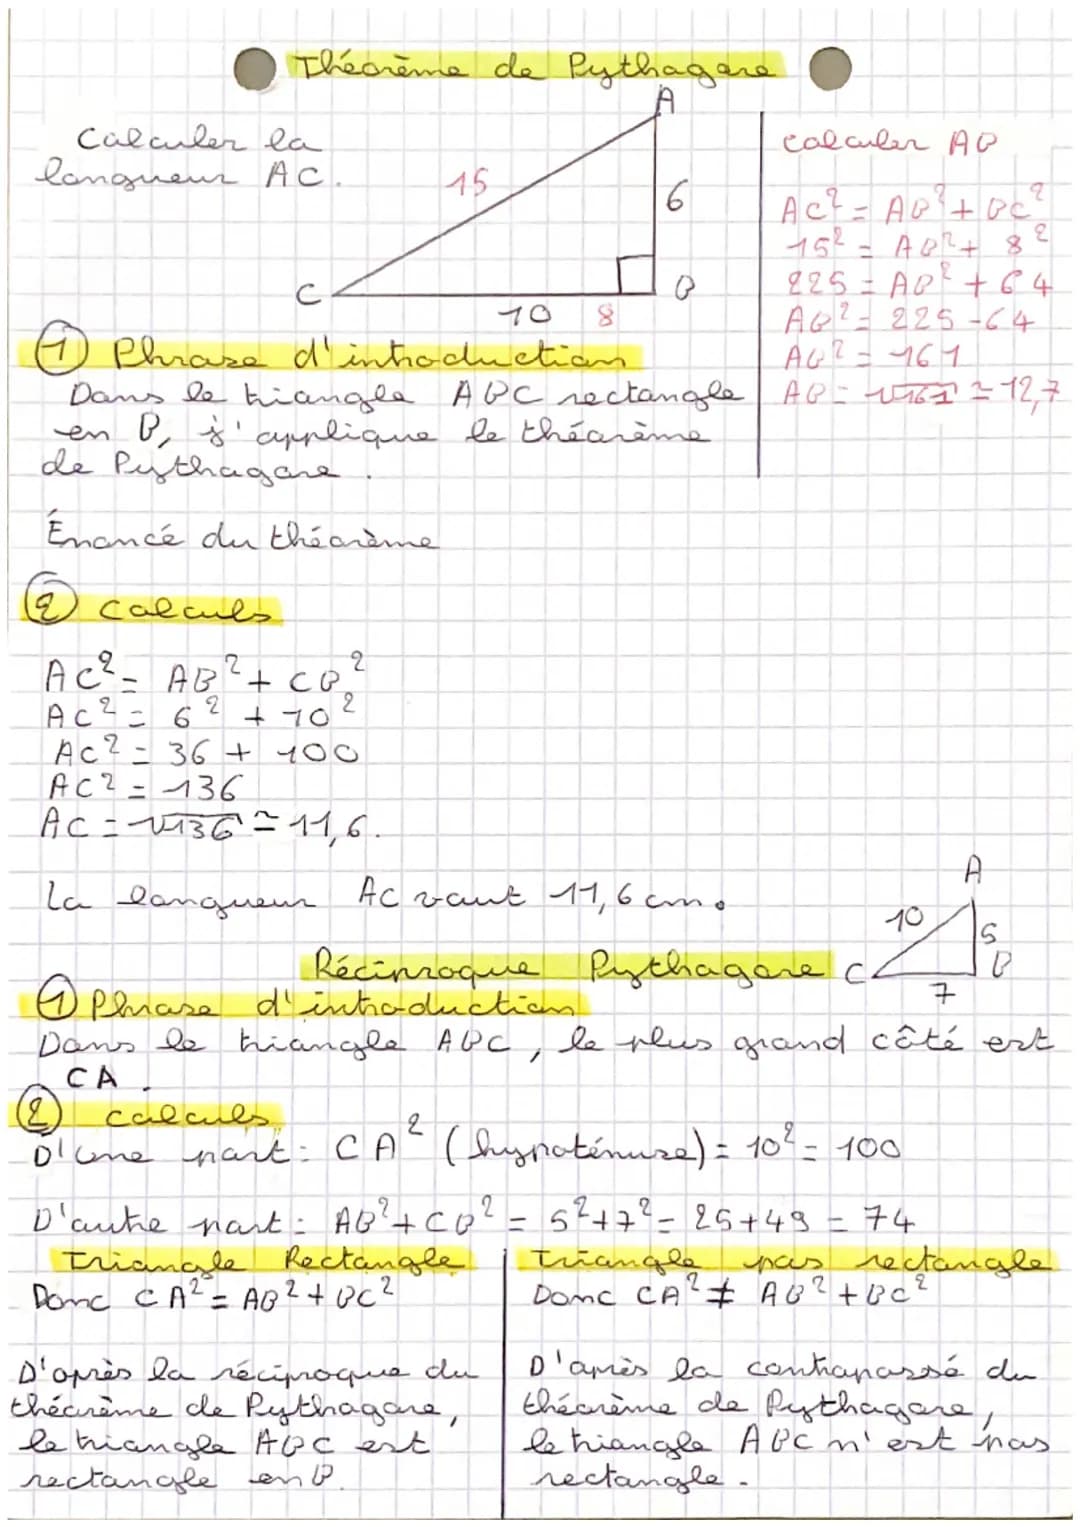 Théorème de Pythagore
Calculer la
longueur AC.
A
15
6
C
B
10
8
calculer AB
AC² = AB² + BC²
15² = AB² + 8²
225 = AB² + 64
AB² = 225 - 64
AB² = 161
AB = √161 ≃ 12,7
① Phrase d'introduction
Dans le triangle ABC rectangle
en B, j'applique le théorème
de Pythagore.
Énoncé du théorème
② Calculs
AC² = AB² + CB²
AC² = 6² + 10²
AC² = 36 + 100
AC² = 136
AC = √136 ≃ 11,6.
La longueur AC vaut 11,6 cm.
A
10
5
C
B
7
Réciproque Pythagore
① Phrase d'introduction
Dans le triangle ABC, le plus grand côté est
CA.
② calculs
D'une part : CA² (hypoténuse) = 10² = 100
D'autre part : AB² + CB² = 5² + 7² = 25 + 49 = 74
Triangle Rectangle
Donc CA² = AB² + BC²
D'après la réciproque du
théorème de Pythagore,
le triangle ABC est
rectangle en B.
Triangle pas rectangle
Donc CA² ≠ AB² + BC²
D'après la contraposé du
théorème de Pythagore,
le triangle ABC n'est pas
rectangle.